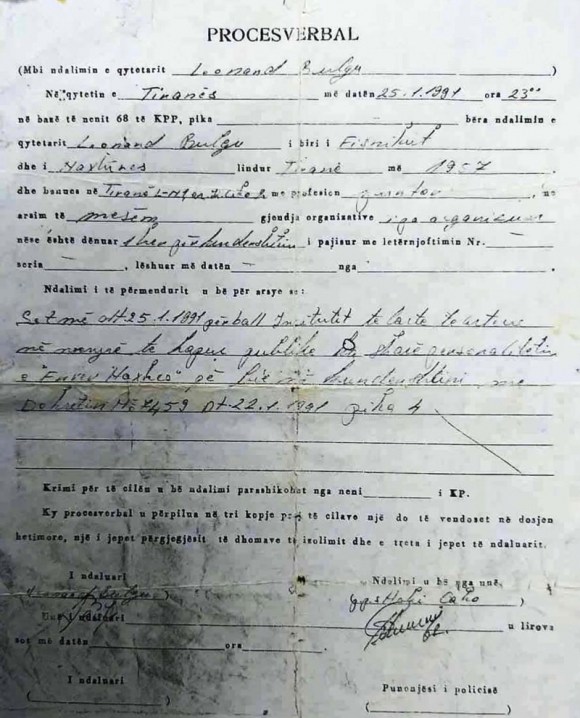 PROCESVERBAL
(Mbi ndalimin e qytetarit Leonard Bulgu)
Në qytetin e Tiranës më datën 25.1.1991 ora 23⁰⁰
në bazë të nenit 68 të KPP, pika bëra ndalimin e
qytetarit Leonard Bulgu i biri i Fisnikut
dhe i lindur Tiranë më 1957
dhe banues në Tiranë me profesion, me
arsim të mesëm gjendja organizative i pa organizuar
nëse është dënuar i pajisur me letërnjoftimin Nr. —
seria —, lëshuar më datën — nga
Ndalimi i të përmendurit u bë për arsye se:
Sot më dt 25.1.1991 përball Institutit të Lartë të arteve
në mënyrë të hapur publike shau personalitetin
e "Enver Hoxhes" që bie në kundërshtim me
Dekretin Nr 7459 Dt. 22.1.1991 pika 4
Krimi për të cilën u bë ndalimi parashikohet nga neni i KP.
Ky procesverbal u përpilua në tri kopje prej të cilave një do të vendoset në dosjen
hetimore, një i jepet përgjegjësit të dhomave të izolimit dhe e treta i jepet të ndaluarit.
I ndaluari Ndalimi u bë nga unë
( )
Unë i ndaluari u lirova
sot më datën ora
I ndaluari Punonjësi i policisë
( ) ( )